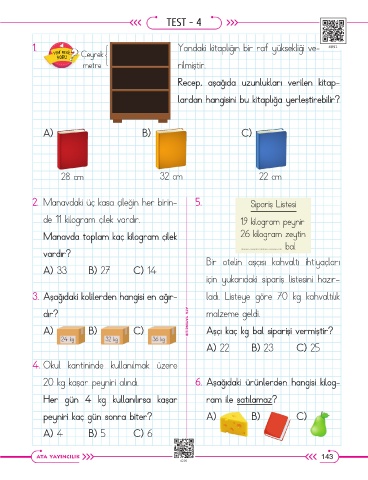 TEST - 4
1.
Çeyrek
metre
Yandaki kitaplığın bir raf yüksekliği ve-
rilmiştir.
Recep, aşağıda uzunlukları verilen kitap-
lardan hangisini bu kitaplığa yerleştirebilir?
A) B) C)
28 cm 32 cm 22 cm
2. Manavdaki üç kasa çileğin her birin-
de 11 kilogram çilek vardır.
Manavda toplam kaç kilogram çilek
vardır?
A) 33 B) 27 C) 14
3. Aşağıdaki kolilerden hangisi en ağır-
dır?
A) B) C)
24 kg 32 kg 36 kg
4. Okul kantininde kullanılmak üzere
20 kg kaşar peyniri alındı.
Her gün 4 kg kullanılırsa kaşar
peyniri kaç gün sonra biter?
A) 4 B) 5 C) 6
5.
Sipariş Listesi
19 kilogram peynir
26 kilogram zeytin
.................... bal
Bir otelin aşçısı kahvaltı ihtiyaçları
için yukarıdaki sipariş listesini hazır-
ladı. Listeye göre 70 kg kahvaltılık
malzeme geldi.
Aşçı kaç kg bal siparişi vermiştir?
A) 22 B) 23 C) 25
6. Aşağıdaki ürünlerden hangisi kilog-
ram ile satılamaz?
A) B) C)
ATA YAYINCILIK
143